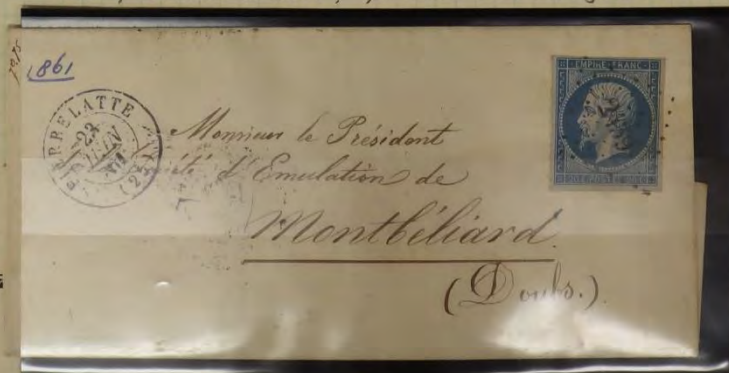 1861
PIERRELATTE
23
JUIN
61
(25)
EMPIRE FRANC
20 C POSTES 20 C
Monsieur le Président
Société d'Emulation de
Montbéliard.
(Doubs.)